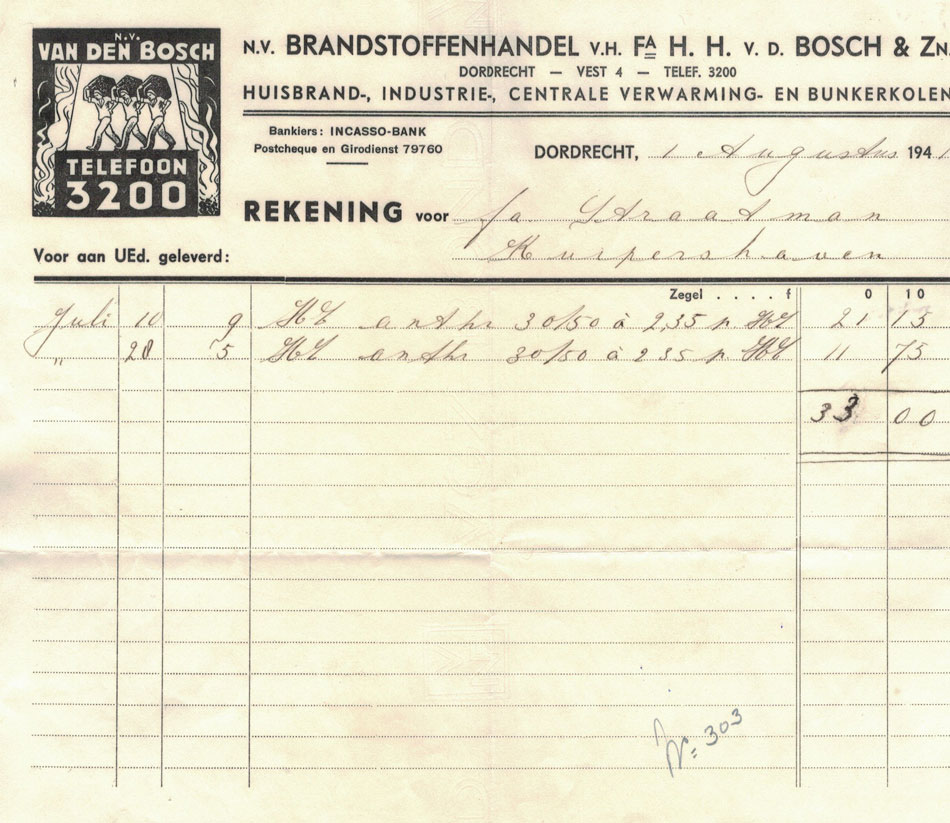 N.V.
VAN DEN BOSCH
TELEFOON
3200
N.V. BRANDSTOFFENHANDEL V.H. FA H. H. V. D. BOSCH & ZN.
DORDRECHT — VEST 4 — TELEF. 3200
HUISBRAND-, INDUSTRIE-, CENTRALE VERWARMING- EN BUNKERKOLEN
Bankiers: INCASSO-BANK
Postcheque en Girodienst 79760
DORDRECHT, 1 Augustus 1941
REKENING voor fa Straatman
Kuipershaven
Voor aan UEd. geleverd:
Zegel . . . . f 0 10
Juli 10 9 Hl anthr 30/50 à 2,35 p. Hl 21 15
" 28 5 Hl anthr 30/50 à 2 35 p. Hl 11 75
33 00
No= 303